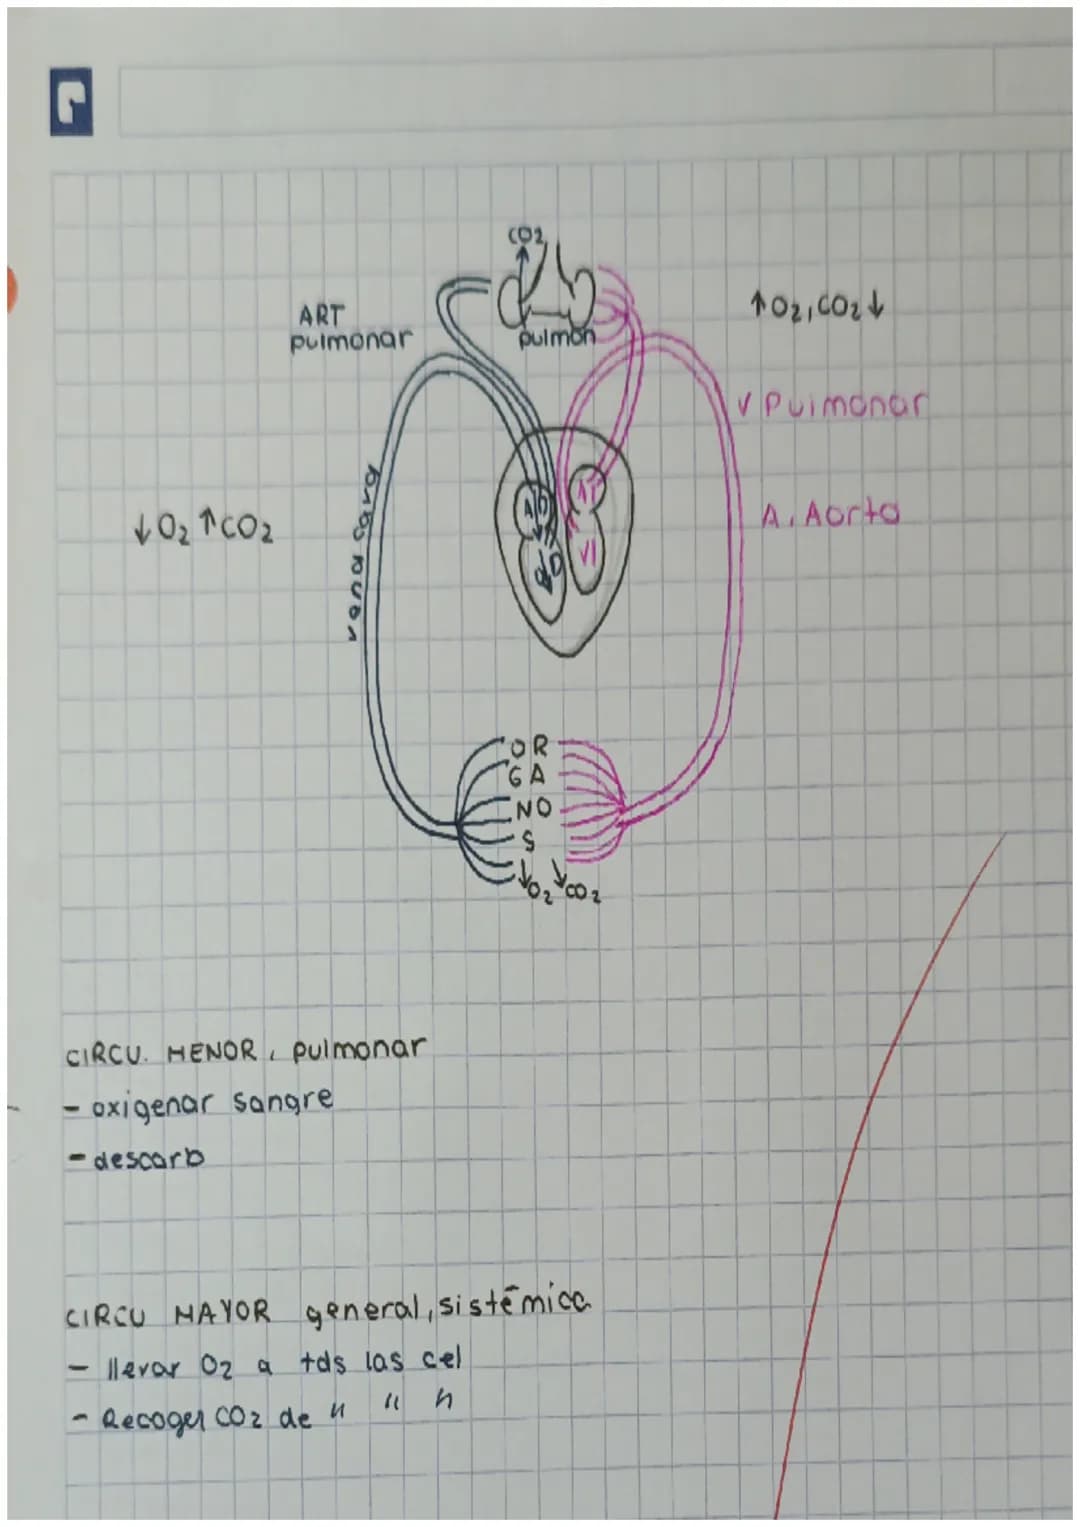 CO2
ART
pulmonar
pulmón
↑O2, CO2↓
V Pulmonar
A. Aorta
↓O2 ↑CO2
vena cava
AD
AI
VD
VI
OR
GA
NO
S
↓O2 ↓CO2
CIRCU. MENOR, pulmonar
- oxigenar sangre
- descarb
CIRCU MAYOR general, sistémica
- llevar O2 a tds las cel
- Recoger CO2 de " " "